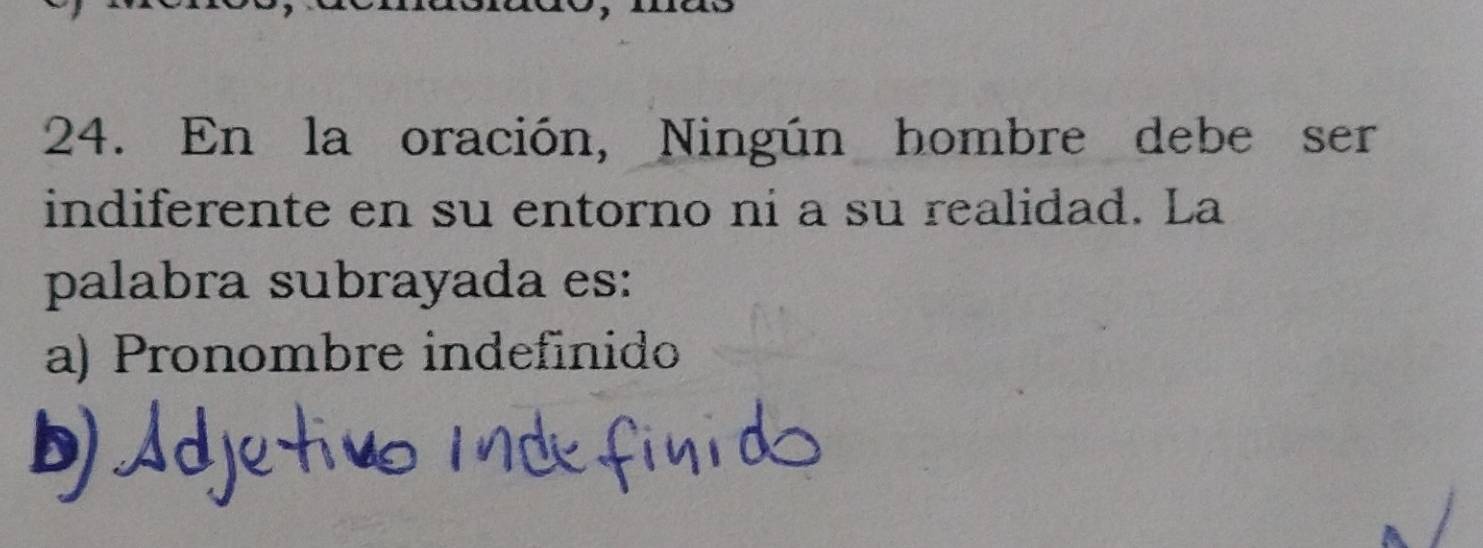 c) Menos, demasiado, más
24. En la oración, Ningún hombre debe ser
indiferente en su entorno ni a su realidad. La
palabra subrayada es:
a) Pronombre indefinido
b) Adjetivo indefinido